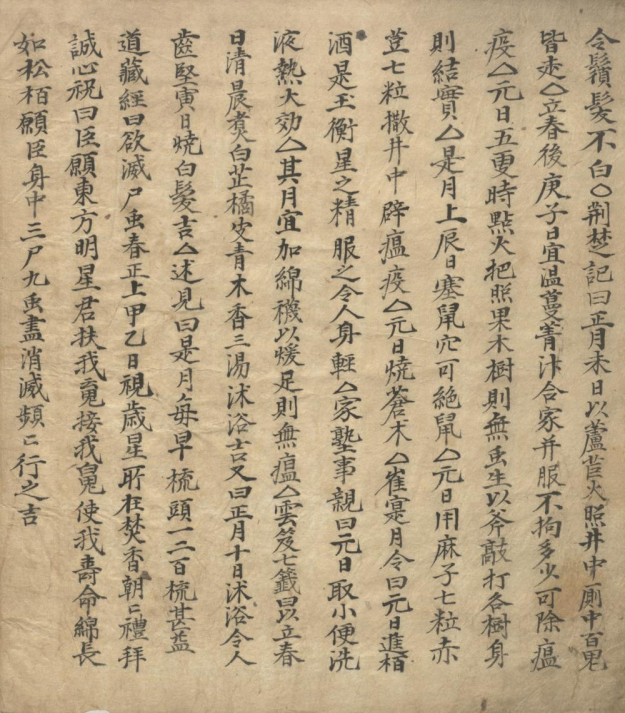 令鬚髮不白○荆楚記曰正月未日以蘆苣火照井中厠中百鬼
皆走△立春後庚子日宜温蔓菁汁合家并服不拘多少可除瘟
疫△元日五更時點火把照果木樹則無虫生以斧敲打各樹身
則結實△是月上辰日塞鼠穴可絶鼠△元日用麻子七粒赤
荳七粒撒井中辟瘟疫△元日燒蒼术△崔寔月令曰元日進栢
酒是玉衡星之精服之令人身輕△家塾事親曰元日取小便洗
液熱大効△其月宜加綿襪以煖足則無瘟△雲笈七籤曰以立春
日清晨煑白芷橘皮青木香三湯沐浴吉又曰正月十日沐浴令人
齒堅寅日燒白髮吉△述見曰是月每早梳頭一二百梳甚益
道藏經曰欲滅尸虫春正上甲乙日視歳星所在焚香朝ニ禮拜
誠心祝曰臣願東方明星君扶我䰟接我䰟使我壽命綿長
如松栢願臣身中三尸九虫盡消滅頻ニ行之吉